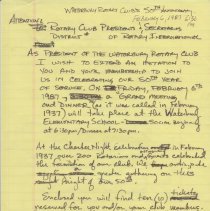 WATERBURY ROTARY CLUB'S 50th Anniversary
February 6, 1987
ATTENTION: ROTARY CLUB PRESIDENTS & SECRETARYS
DISTRICT OF ROTARY INTERNATIONAL
AS PRESIDENT OF THE WATERBURY ROTARY CLUB
I WISH TO EXTEND AN INVITATION TO
YOU AND YOUR MEMBERSHIP TO JOIN
US IN CELEBRATING OUR 50th YEAR
OF SERVICE. ON FRIDAY, FEBRUARY 6th
1987 A GRAND MEETING
AND DINNER (as it was called in February
1937) will take place at the Waterbury
ELEMENTARY SCHOOL - beginning
at 6:30pm / Dinner at 7:30pm.
At the Charter Night celebration in February
1937, over 200 Rotarians and guests celebrated
the foundation of our club. We
greater gathering on this
Night of our 50th.
Enclosed you will find (10) tickets
reserved for you and/or your club members.